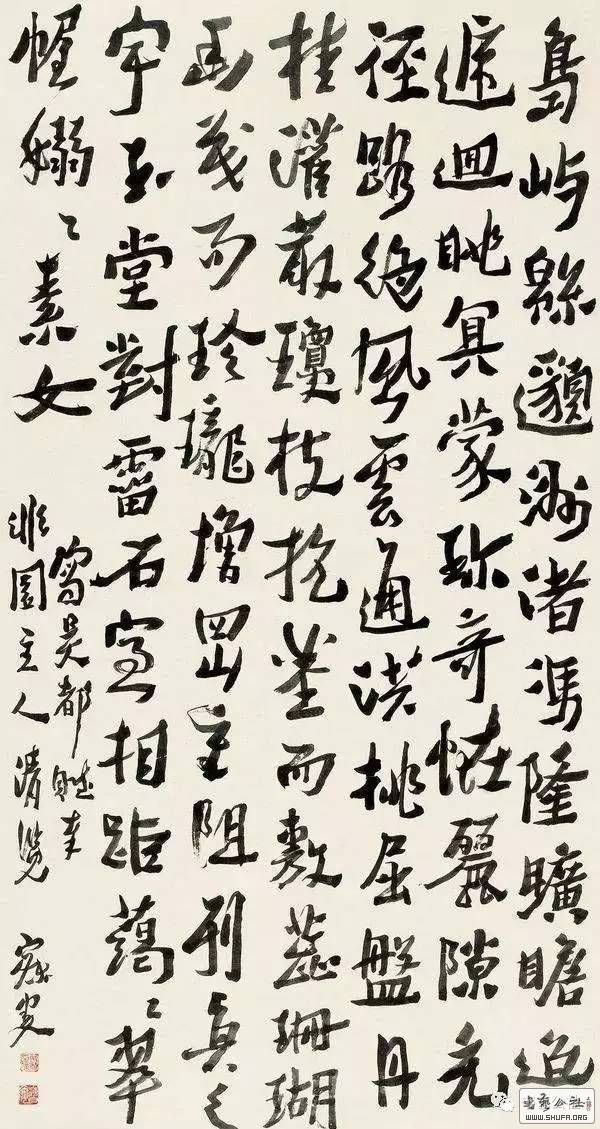 島嶼緜邈洲渚馮隆曠瞻迢
遞迴眺冥蒙珎奇恠麗隙充
徑路絕風雲通洪桃屈盤丹
桂灌叢瓊枝抗莖而敷蕊珊瑚
幽茂而玲瓏增岡重阻列真之
宇玉堂對霤石室相距藹〻翠
幄嫋〻素女
寫吳都賦奉
園主人清覽
寐叟
WWW.SHUFA.ORG